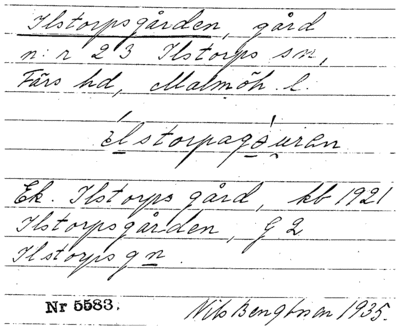 Ilstorpsgården, gård
n:r 23 Ilstorps sn,
Färs hd, Malmöh. l.
Ek. Ilstorps gård, kb 1921
Ilstorpsgården, G 2
Ilstorpsgn.
Nr 5583. Nils Bengtsson 1935.